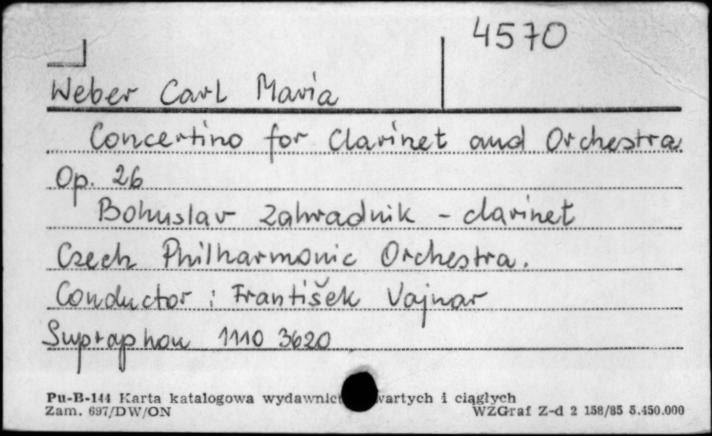 4570
Weber Carl Maria
Concertino for Clarinet and Orchestra
Op. 26
Bohuslav Zahradnik - clarinet
Czech Philharmonic Orchestra.
Conductor : František Vajnar
Supraphon 1110 3620
Pu-B-144 Karta katalogowa wydawnict wartych i ciągłych
Zam. 697/DW/ON WZGraf Z-d 2 158/85 5.450.000